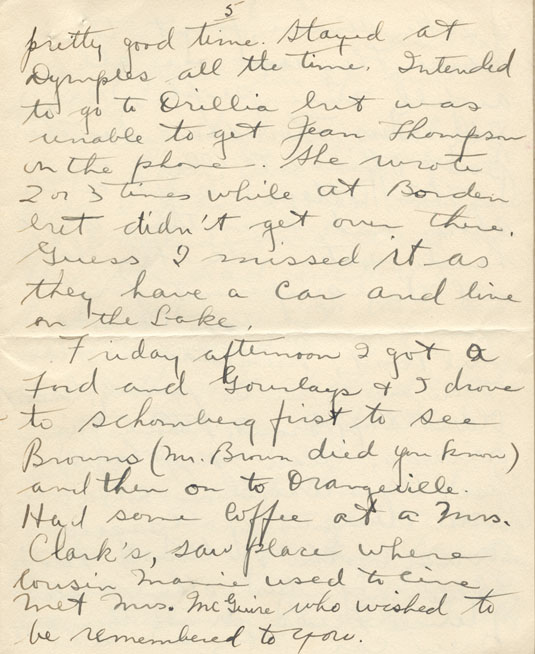 5
pretty good time. Stayed at
Dymples all the time. Intended
to go to Orillia but was
unable to get Jean Thompson
on the phone. She wrote
2 or 3 times while at Borden
but didn't get over there.
Guess I missed it as
they have a car and live
on the Lake.
Friday afternoon I got a
Ford and Gourlays & I drove
to Schomberg first to see
Browns (Mr. Brown died you know)
and then on to Orangeville.
Had some Coffee at a Mrs.
Clark's, saw place where
Cousin Mamie used to live
Met Mrs. McGuire who wished to
be remembered to you.